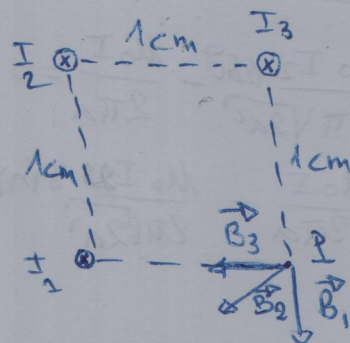 1cm
I3
I2
1cm
1cm
I1
B3
P
B2
B1